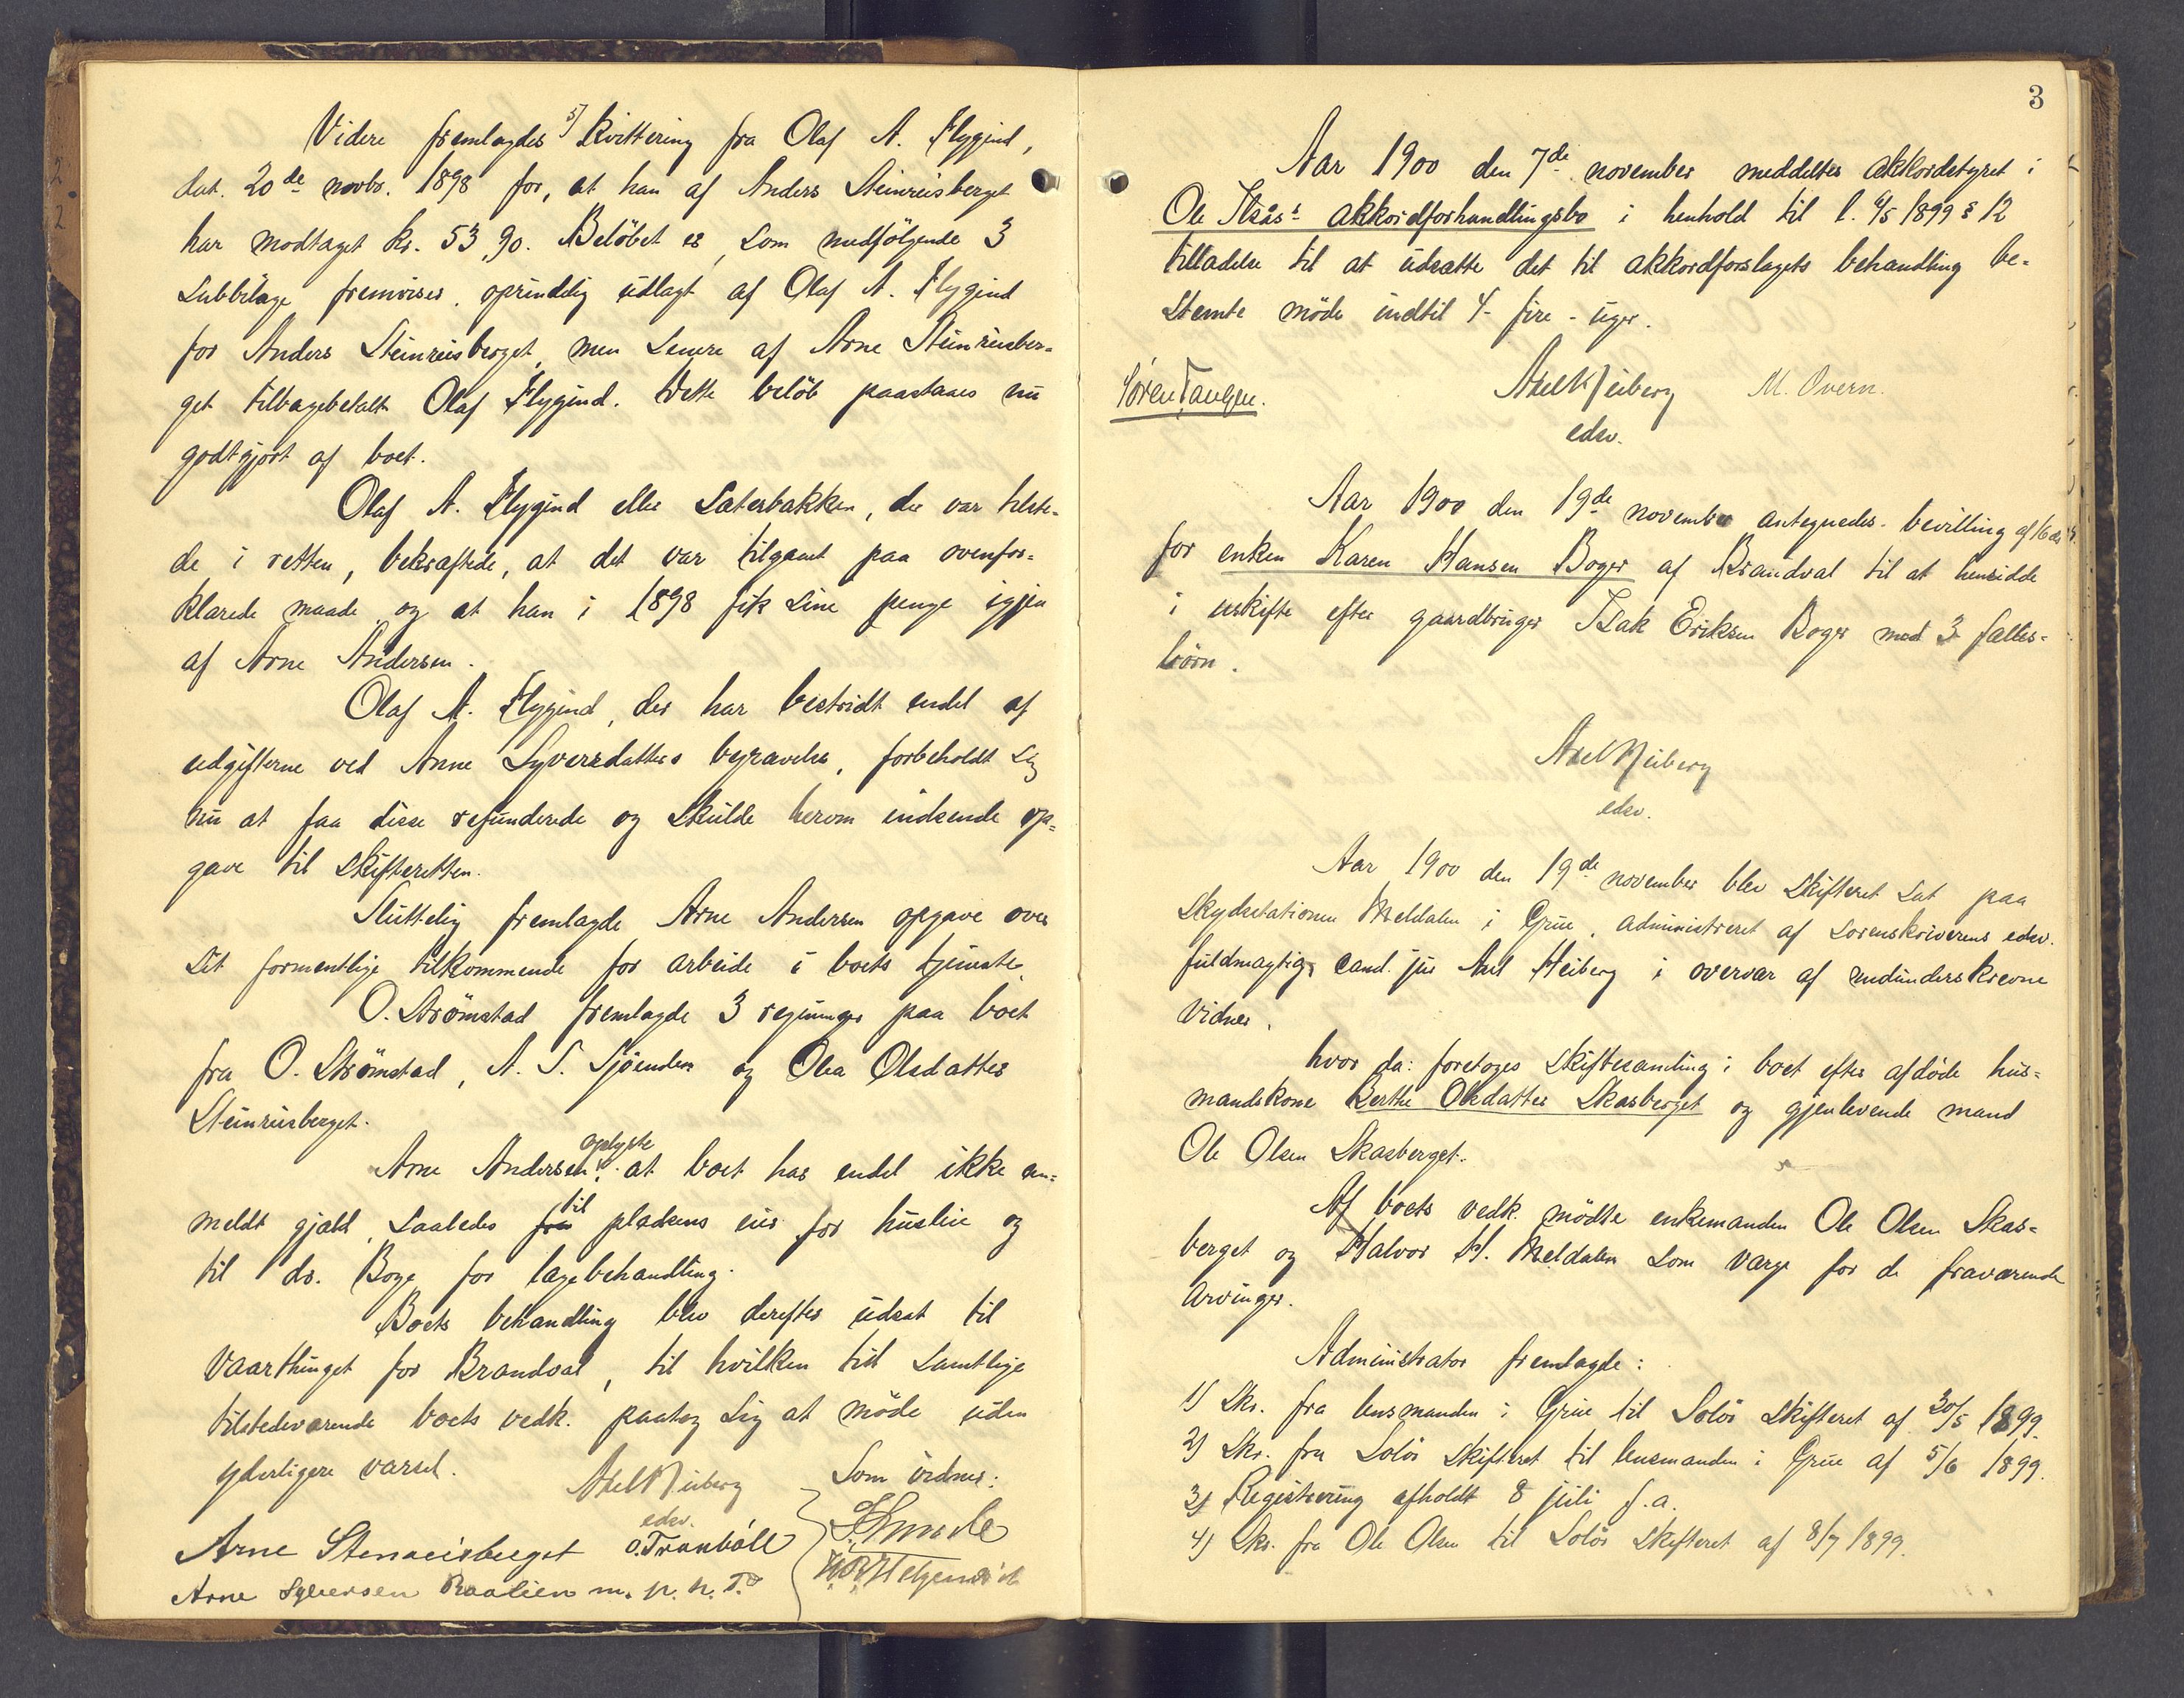 Videre fremlagdes 5) Kvittering fra Olaf A. Flygind,
dat. 20de novbr. 1898 for, at han af Anders Steinreisberget
har modtaget kr. 53,90. Beløbet er, som medfølgende 3
subbilage fremviser, oprindelig udlagt af Olaf A. Flygind
for Anders Steinreisberget, men senere af Arne Steinreisber-
get tilbagebetalt Olaf Flygind. Dette beløb paastaaes nu
godtgjort af boet.
Olaf A. Flygind eller Sæterbakken, der var tilste-
de i retten, bekræftede, at det var tilgaaet paa ovenfor-
klarede maade og at han i 1898 fik sine penge igjen
af Arne Andersen.
Olaf A. Flygind, der har bestridt endel af
udgifterne ved Anne Syversdatters begravelse, forbeholdt sig
nu at faa disse refunderede og skulde herom indsende op-
gave til skifteretten.
Sluttelig fremlagde Arne Andersen opgave over
sit formentlige tilkommende for arbeide i boets tjeneste.
O. Strømstad fremlagde 3 regninger paa boet
fra O. Strømstad, A. S. Sjøenden og Olea Olsdatter
Steinreisberget.
Arne Andersen oplyste at boet har endel ikke an-
meldt gjæld, saaledes fra til pladsens eier for husleie og
til dr. Boye for lægebehandling.
Boets behandling blev derefter udsat til
Vaarthinget for Brandval, til hvilken tid samtlige
tilstedeværende boets vedk. paatog sig at møde uden
yderligere varsel.
Axel Heiberg
edsv.
Som vidner:
Arne Stenreisberget O. Tranbøll
Arne Syversen Raalien m. p. P.
3
Aar 1900 den 7de november meddeltes akkordstyret i
Ole Isås's akkordforhandlingsbo i henhold til l. 6/5 1899 § 12
tilladelse til at udsætte det til akkordforslagets behandling be-
stemte møde indtil 4 - fire - uger.
Søren Fangen. Axel Heiberg M. Overn.
edsv.
Aar 1900 den 19de november antegnedes bevilling af 16 ds.
for enken Karen Hansen Boger af Brandval til at hensidde
i uskifte efter gaardbruger Isak Eriksen Boger med 3 fælles-
børn.
Axel Heiberg
edsv.
Aar 1900 den 19de november blev skifteret sat paa
skydsstationen Meldalen i Grue, administreret af sorenskriverens edsv.
fuldmægtig, cand. jur Axel Heiberg i overvær af medunderskrevne
vidner,
hvor da: foretoges skiftesamling i boet efter afdøde hus-
mandskone Berthe Olsdatter Skasberget og gjenlevende mand
Ole Olsen Skasberget.
Af boets vedk. mødte enkemanden Ole Olsen Skas-
berget og Halvor H. Meldalen som værge for de fraværende
arvinger.
Administrator fremlagde:
1) Skr. fra lensmanden i Grue til Solør skifteret af 30/5 1899.
2) Skr. fra Solør skifteret til lensmanden i Grue af 5/6 1899.
3) Registrering afholdt 8 juli f.a.
4) Skr. fra Ole Olsen til Solør skifteret af 8/7 1899.